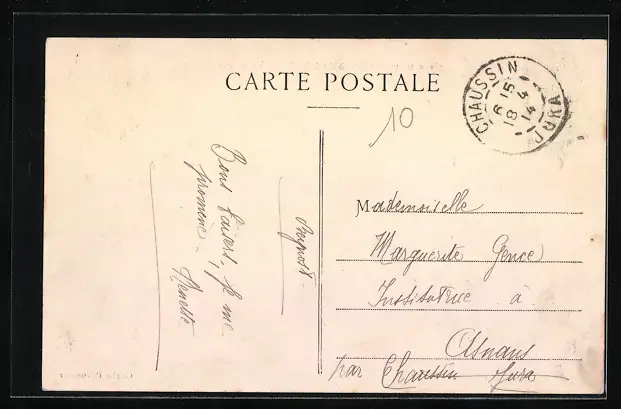 CARTE POSTALE
CHAUSSIN
6 15
18 4
14
JURA
10
Bons baisers, je me
promène -
Nénette
Mademoiselle
Marguerite Gence
Institutrice à
Asnans
par Chaussin Jura